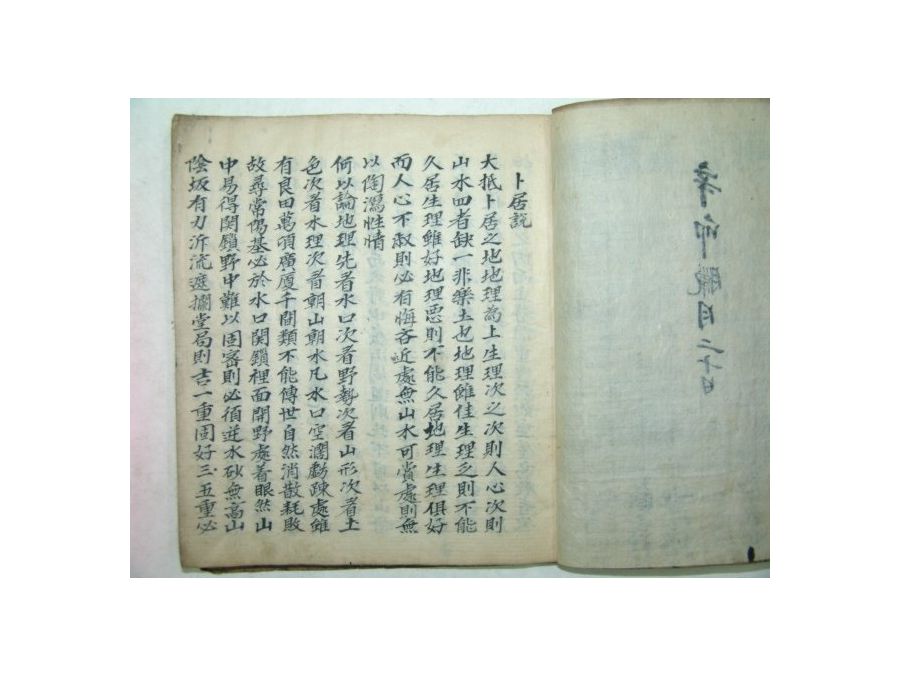 辛卯臘月二十日
卜居説
大抵卜居之地地理為上生理次之次則人心次則
山水四者缺一非樂土也地理雖佳生理乏則不能
久居生理雖好地理惡則不能久居地理生理俱好
而人心不淑則必有悔吝近處無山水可賞處則無
以陶瀉性情
何以論地理先看水口次看野勢次看山形次看土
色次看水理次看朝山朝水凡水口空濶虧踈處雖
有良田萬頃廣廈千間類不能傳世自然消散耗敗
故尋常陽基必於水口関鎖裡面開野處着眼然山
中易得関鎖野中難以固審則必須逆水砂無高山
陰坂有力泝流遮攔堂局則吉一重固好三五重必